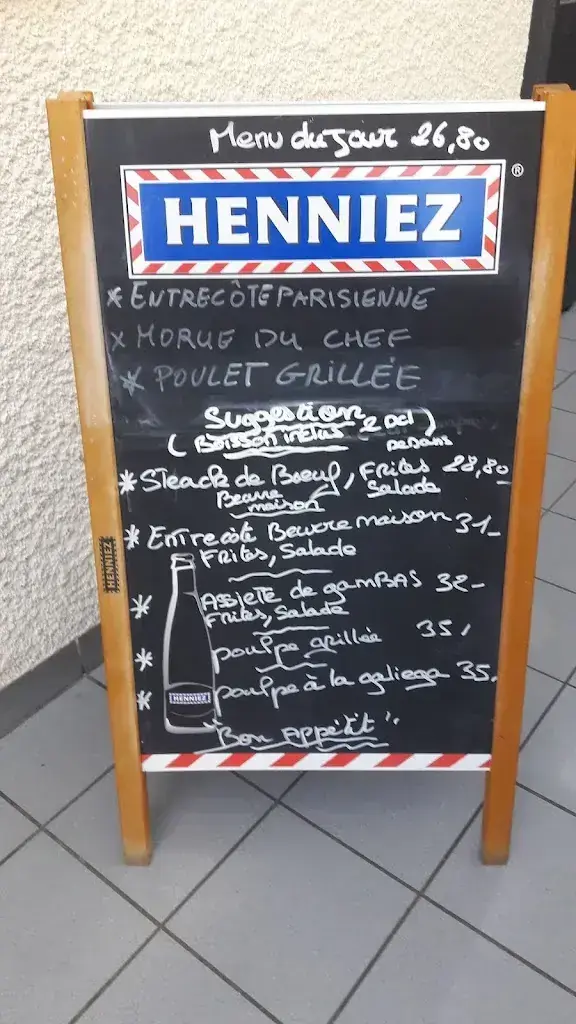 Menu du Jour 26,80
HENNIEZ®
* ENTRECÔTE PARISIENNE
x MORUE DU CHEF
* POULET GRILLÉE
Suggestion
(Boisson inclus 2 dcl)
* Steack de Boeuf, Frites 28,80
Beurre Salade
maison
* Entrecôte Beurre maison 31-
Frites, Salade
* Assiete de gamBAS 32-
Frites, Salade
* poulpe grillée 35,
* poulpe à la galiega 35.
Bon Appétit
HENNIEZ
HENNIEZ